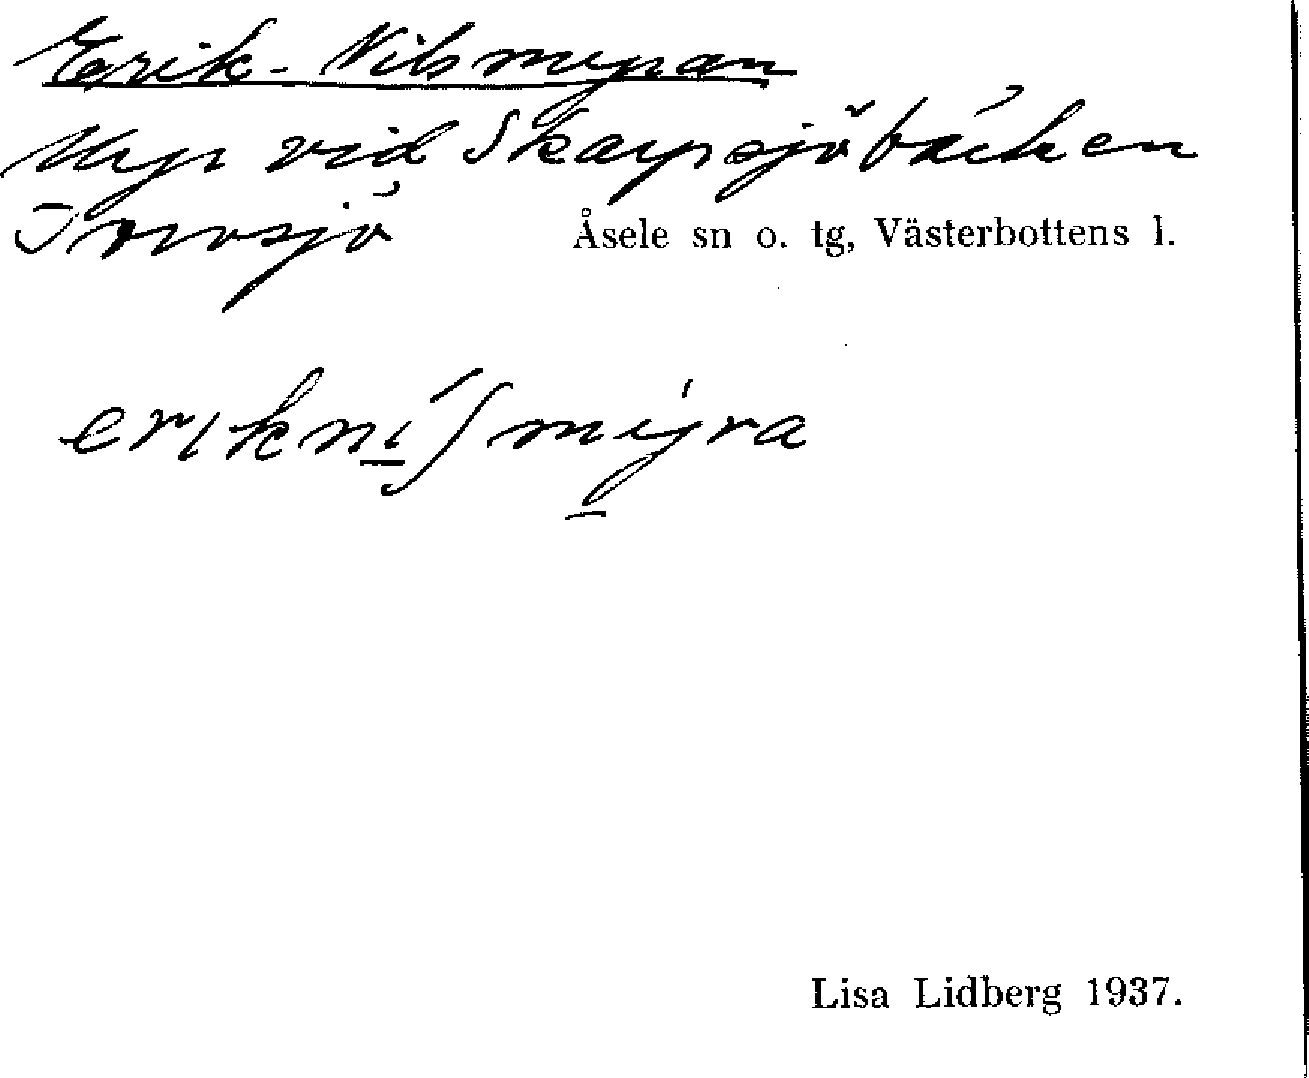 Erik-Nilsmyran
Myr vid Skarpsjöbäcken
Torvsjö Åsele sn o. tg, Västerbottens l.
erıkní̱ʃmý̱ra
Lisa Lidberg 1937.